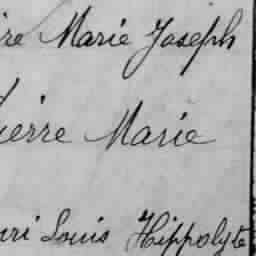 ire Marie Joseph
ierre Marie
nri Louis Hippolyte